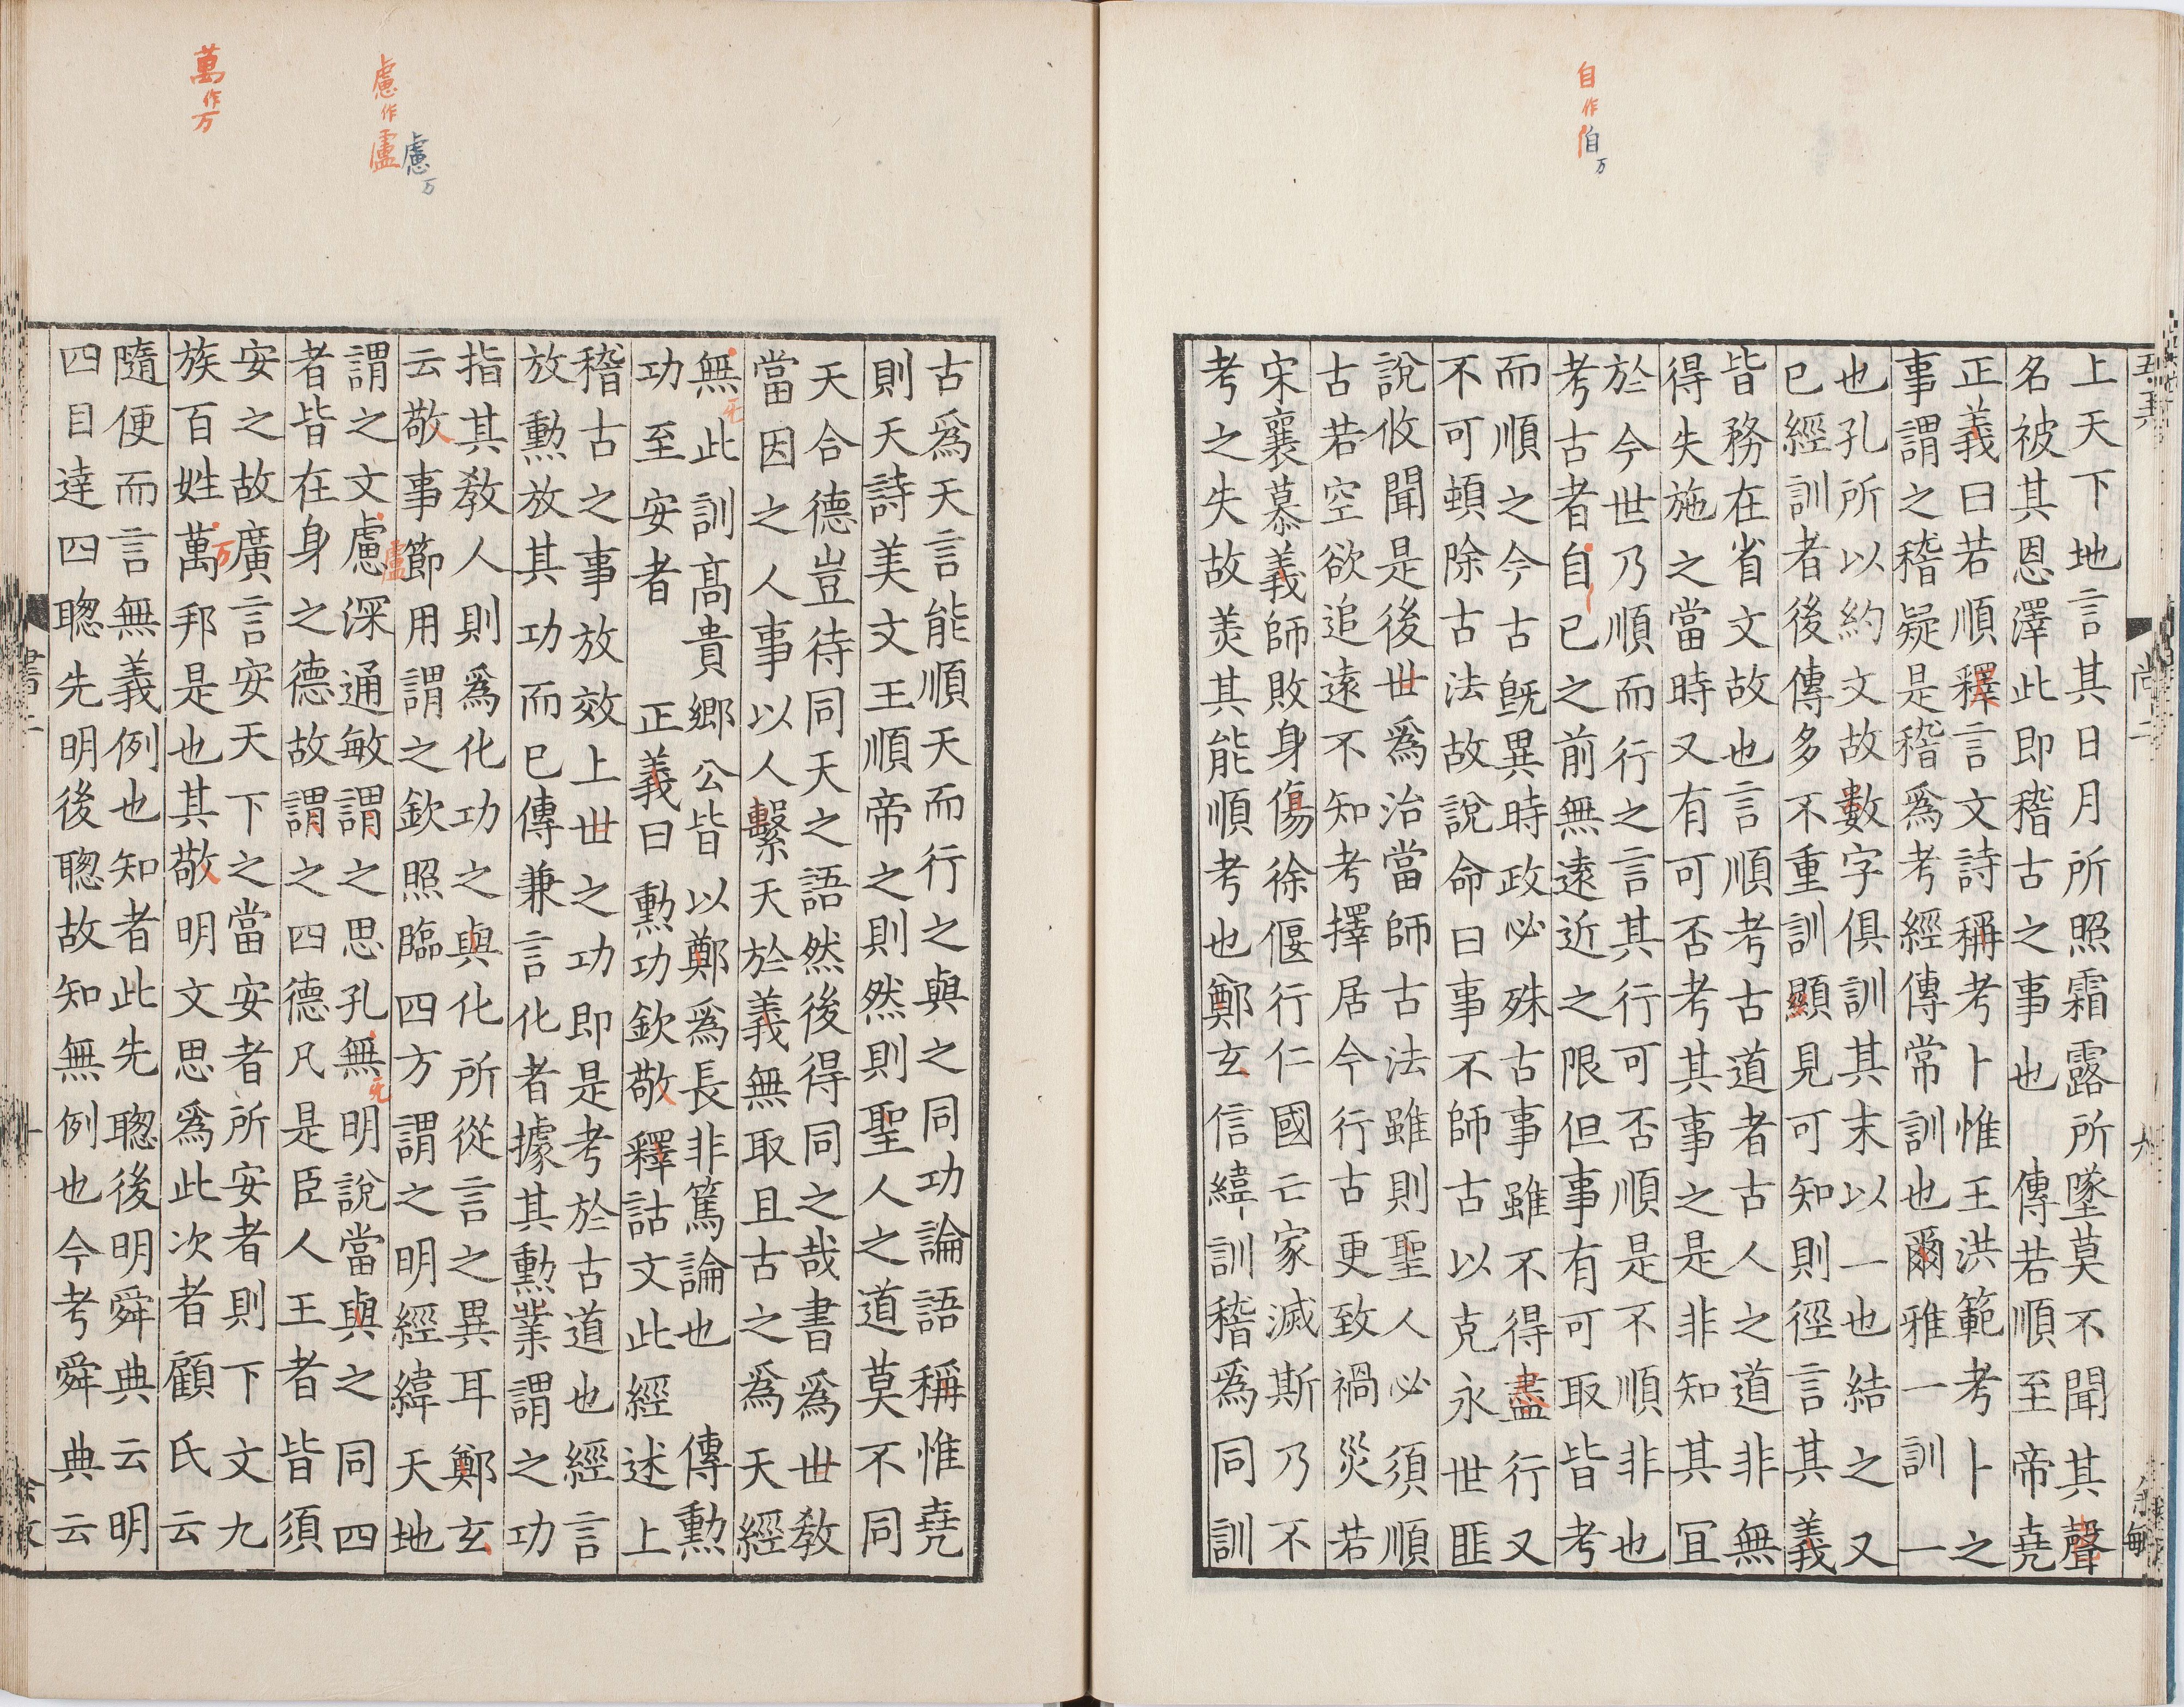 自作㑑
万
上天下地言其日月所照霜露所墜莫不聞其聲
名被其恩澤此即稽古之事也　傳若順至帝堯
正義曰若順釋言文詩稱考卜惟王洪範考卜之
事謂之稽疑是稽爲考經傳常訓也爾雅一訓一
也孔所以約文故數字俱訓其末以一也結之又
已經訓者後傳多不重訓顯見可知則徑言其義
皆務在省文故也言順考古道者古人之道非無
得失施之當時又有可否考其事之是非知其冝
於今世乃順而行之言其行可否順是不順非也
考古者自已之前無遠近之限但事有可取皆考
而順之今古旣異時政必殊古事雖不得盡行又
不可頓除古法故說命曰事不師古以克永世匪
說攸聞是後世爲治當師古法雖則聖人必須順
古若空欲追遠不知考擇居今行古更致禍災若
宋襄慕義師敗身傷徐偃行仁國亡家滅斯乃不
考之失故羙其能順考也鄭玄信緯訓稽爲同訓
慮作盧
慮万
萬作万
古爲天言能順天而行之與之同功論語稱惟堯
則天詩美文王順帝之則然則聖人之道莫不同
天合德豈待同天之語然後得同之哉書爲世教
當因之人事以人繫天於義無取且古之爲天經
無此訓髙貴鄉公皆以鄭爲長非篤論也　傳勲
功至安者　正義曰勲功欽敬釋詁文此經述上
稽古之事放效上世之功即是考於古道也經言
放勲放其功而已傳兼言化者據其勲業謂之功
指其教人則爲化功之與化所從言之異耳鄭玄
云敬事節用謂之欽照臨四方謂之明經緯天地
謂之文慮深通敏謂之思孔無明說當與之同四
者皆在身之德故謂之四德凡是臣人王者皆須
安之故廣言安天下之當安者所安者則下文九
族百姓萬邦是也其敬明文思爲此次者顧氏云
隨便而言無義例也知者此先聰後明舜典云明
四目達四聰先明後聰故知無例也今考舜典云